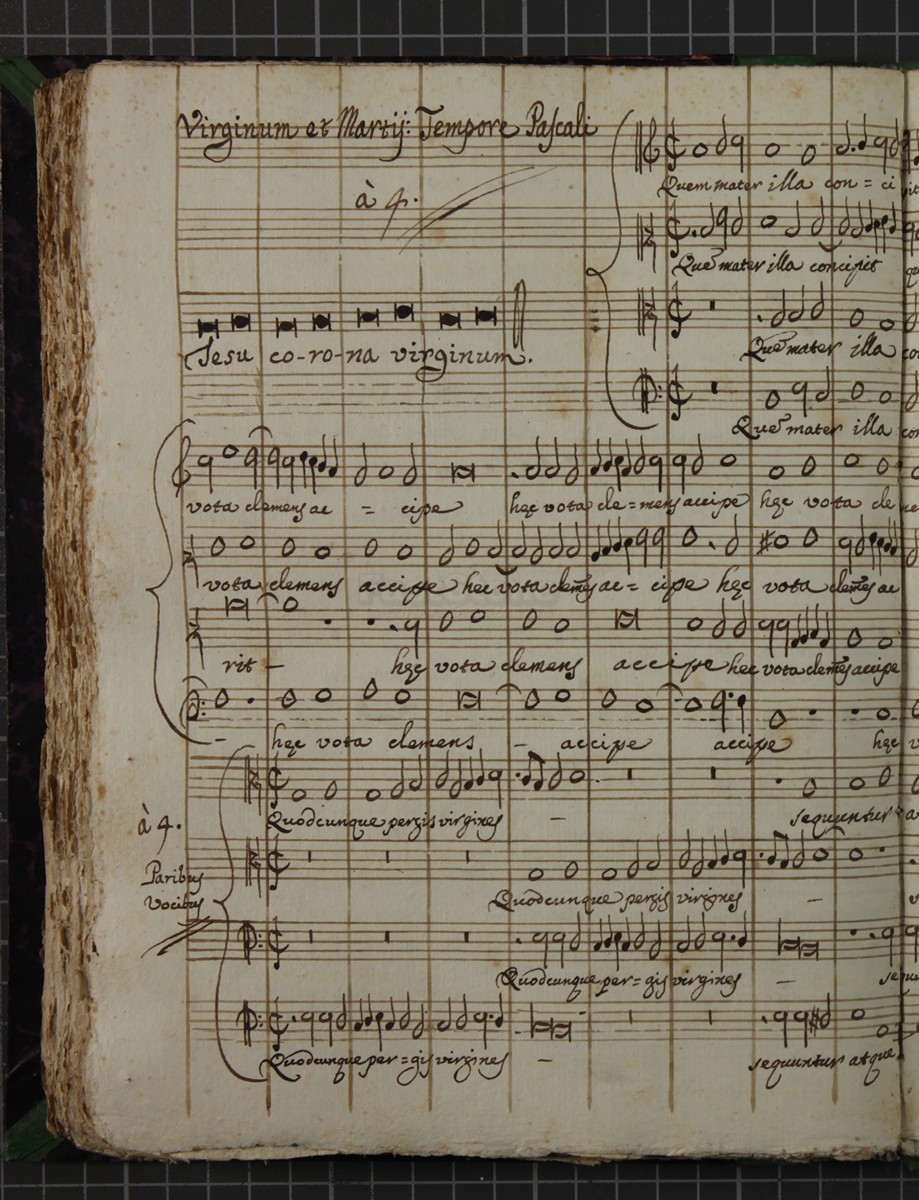 Virginum et Martij: Tempore Pascali
à 4.
Quem mater illa con = ci
Quē mater illa concipit
Jesu co-ro-na virginum.
Quē mater illa
Quē mater illa
vota clemens ac = cipe hęc vota cle = mens accipe hęc vota cle
vota clemens accipe hęc vota clemēs ac = cipe hęc vota clemēs ac
rit - hęc vota clemens accipe hęc vota clemēs accipe
- hęc vota clemens - accipe accipe hęc
Quodcunque pergis virgines - sequuntur
à 4.
Paribus
Vocibus
Quodcunque pergis virgines -
Quodcunque per = gis virgines -
Quodcunque per = gis virgines - sequuntur atque